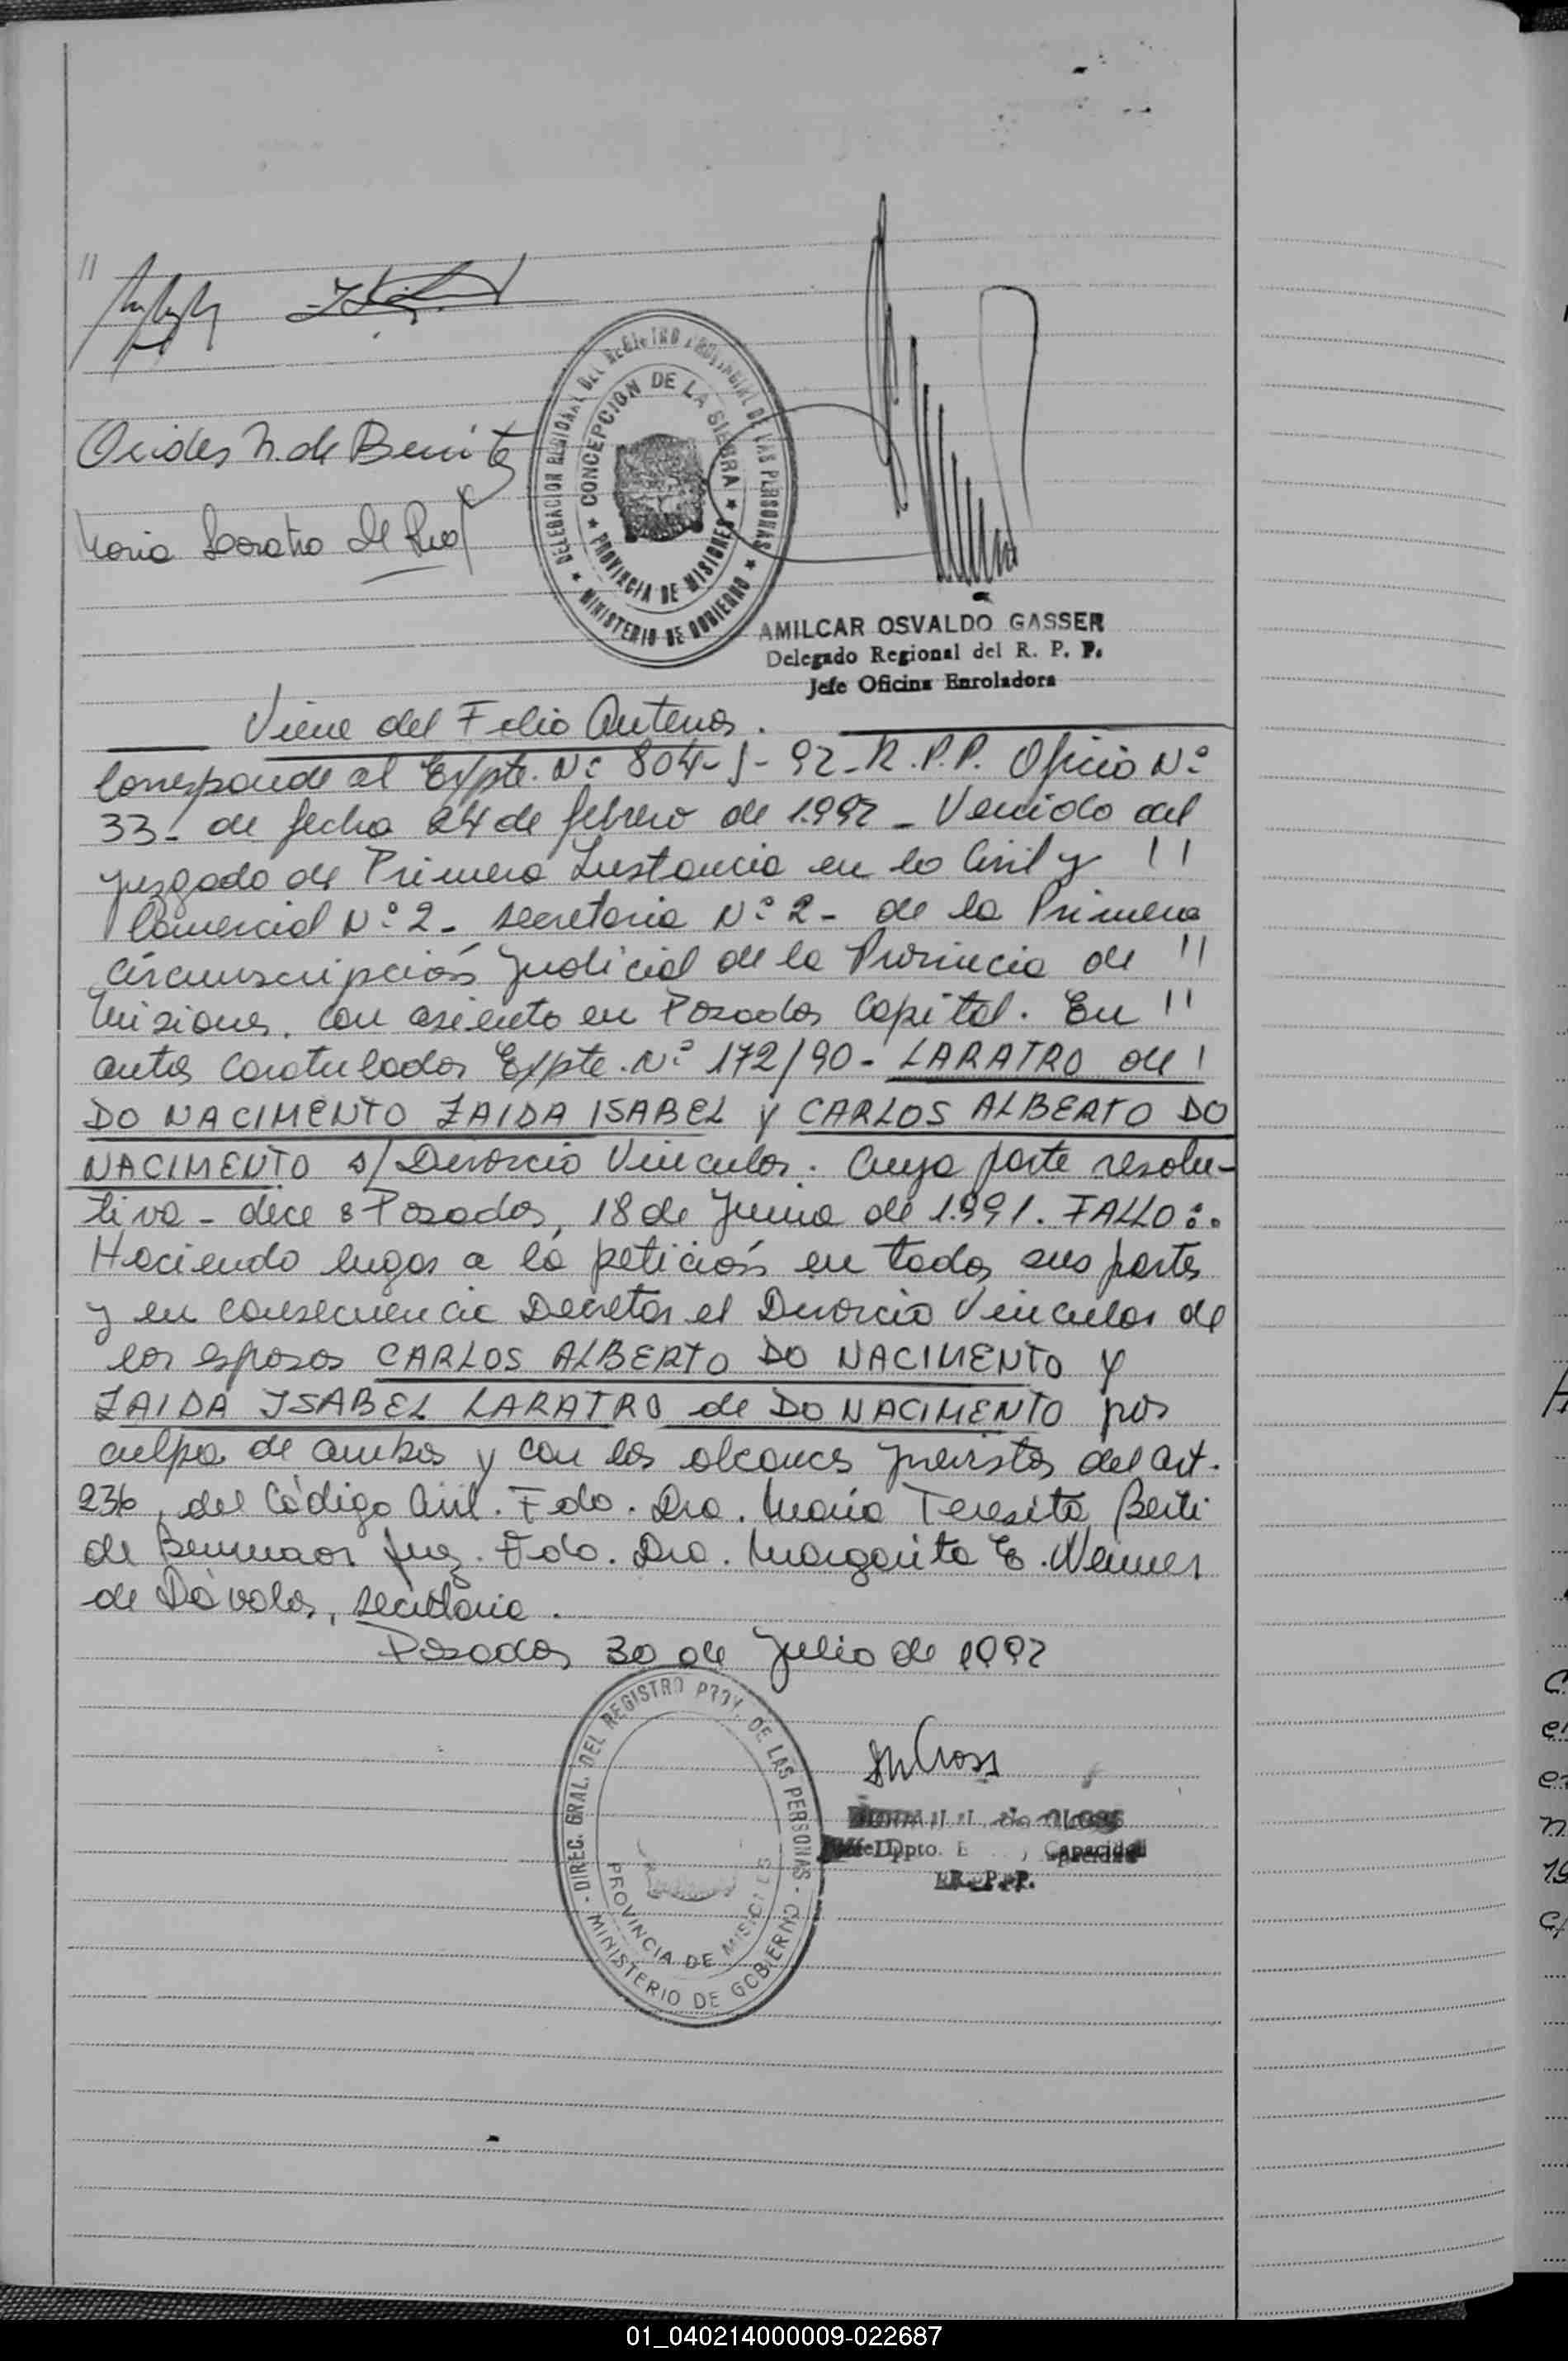 11
Orides N. de Benitez
Maria Laratro de
DELEGACION REGIONAL DEL REGISTRO PROVINCIAL DE LAS PERSONAS
★ MINISTERIO DE GOBIERNO ★
CONCEPCION DE LA SIERRA
★ PROVINCIA DE MISIONES ★
AMILCAR OSVALDO GASSER
Delegado Regional del R. P. P.
Jefe Oficina Enroladora
Viene del Folio Anterior.
Corresponde al Expte. Nº 804-J-92-R.P.P. Oficio Nº
33- de fecha 24 de febrero de 1.992 - Venido del
juzgado de Primera Instancia en lo Civil y !!
Comercial Nº 2- secretaria Nº 2- de la Primera
Circunscripción Judicial de la Provincia de !!
Misiones, con asiento en Posadas Capital. En !!
autos caratulados Expte. Nº 172/90- LARATRO de !
DO NACIMENTO ZAIDA ISABEL y CARLOS ALBERTO DO
NACIMENTO s/ Divorcio Vincular. Cuya parte resolu-
tiva - dice: Posadas, 18 de Junio de 1.991. FALLO:.
Haciendo lugar a la petición en todas sus partes
y en consecuencia Decretar el Divorcio Vincular de
los esposos CARLOS ALBERTO DO NACIMENTO y
ZAIDA ISABEL LARATRO de DO NACIMENTO por
culpa de ambos y con los alcances previstos del art.
236, del Código Civil. Fdo. Dra. María Teresita Berti
de Juez. Fdo. Dra. Margarita E.
de Dávalos, secretaria.
Posadas 30 de Julio de 1992
DIREC. GRAL. DEL REGISTRO PROV. DE LAS PERSONAS
- MINISTERIO DE GOBIERNO -
PROVINCIA DE MISIONES
de CLOSS
Jefe Dpto. Capacidad
R. P. P.
01_040214000009-022687